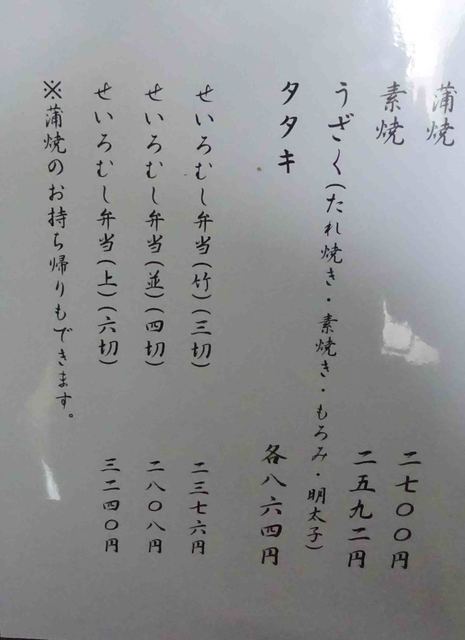 蒲焼 二七〇〇円
素焼 二五九二円
うざく(たれ焼き・素焼き・もろみ・明太子)
タタキ 各八六四円
せいろむし弁当(竹)(三切) 二三七六円
せいろむし弁当(並)(四切) 二八〇八円
せいろむし弁当(上)(六切) 三二四〇円
※蒲焼のお持ち帰りもできます。